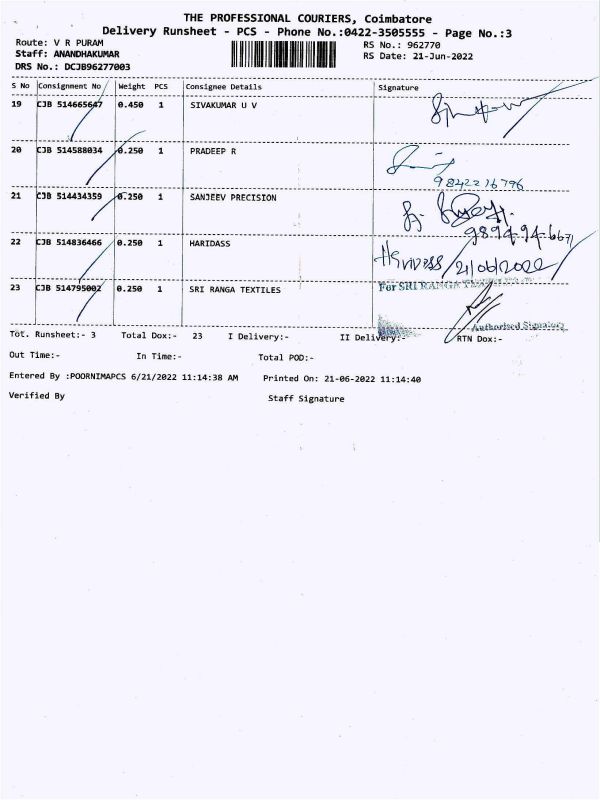 THE PROFESSIONAL COURIERS, Coimbatore
Delivery Runsheet - PCS - Phone No.:0422-3505555 - Page No.:3
Route: V R PURAM
RS No.: 962770
Staff: ANANDHAKUMAR
RS Date: 21-Jun-2022
DRS No.: DCJB96277003
S No Consignment No Weight PCS Consignee Details Signature
19 CJB 514665647 0.450 1 SIVAKUMAR U V
20 CJB 514588034 0.250 1 PRADEEP R
9842216796
21 CJB 514434359 0.250 1 SANJEEV PRECISION
9894946671
22 CJB 514836466 0.250 1 HARIDASS
Haridass 21/06/2022
23 CJB 514795002 0.250 1 SRI RANGA TEXTILES
For SRI RANGA
Authorised Signatory
Tot. Runsheet:- 3 Total Dox:- 23 I Delivery:- II Delivery:- RTN Dox:-
Out Time:- In Time:- Total POD:-
Entered By :POORNIMAPCS 6/21/2022 11:14:38 AM Printed On: 21-06-2022 11:14:40
Verified By Staff Signature